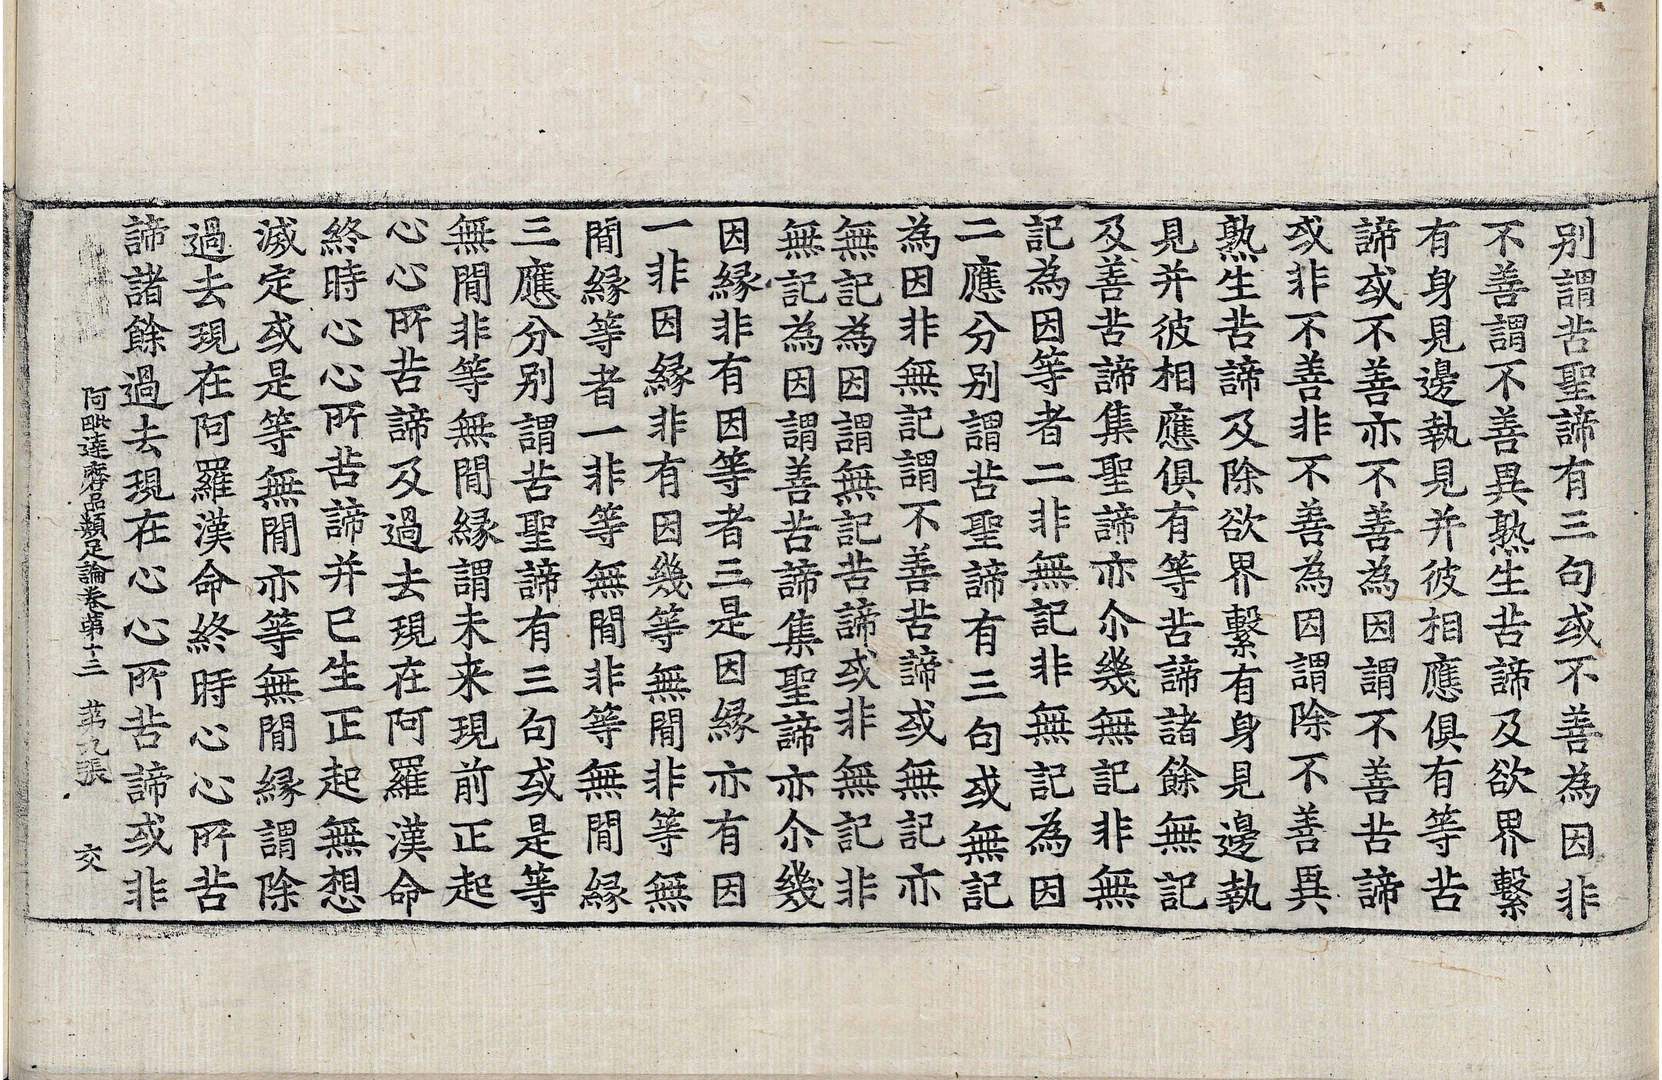 别謂苦聖諦有三句或不善為因非
不善謂不善異熟生苦諦及欲界繫
有身見邊執見并彼相應俱有等苦
諦或不善亦不善為因謂不善苦諦
或非不善非不善為因謂除不善異
熟生苦諦及除欲界繫有身見邊執
見并彼相應俱有等苦諦諸餘無記
及善苦諦集聖諦亦尒幾無記非無
記為因等者二非無記非無記為因
二應分别謂苦聖諦有三句或無記
為因非無記謂不善苦諦或無記亦
無記為因謂無記苦諦或非無記非
無記為因謂善苦諦集聖諦亦尒幾
因緣非有因等者三是因緣亦有因
一非因緣非有因幾等無間非等無
間緣等者一非等無間非等無間緣
三應分别謂苦聖諦有三句或是等
無間非等無間緣謂未来現前正起
心心所苦諦及過去現在阿羅漢命
終時心心所苦諦并已生正起無想
滅定或是等無間亦等無間緣謂除
過去現在阿羅漢命終時心心所苦
諦諸餘過去現在心心所苦諦或非
阿毗達磨品類足論卷第十三 第九張 交